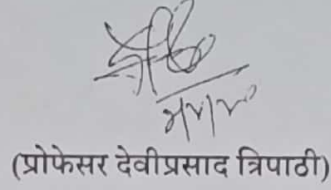 (प्रोफेसर देवीप्रसाद त्रिपाठी)